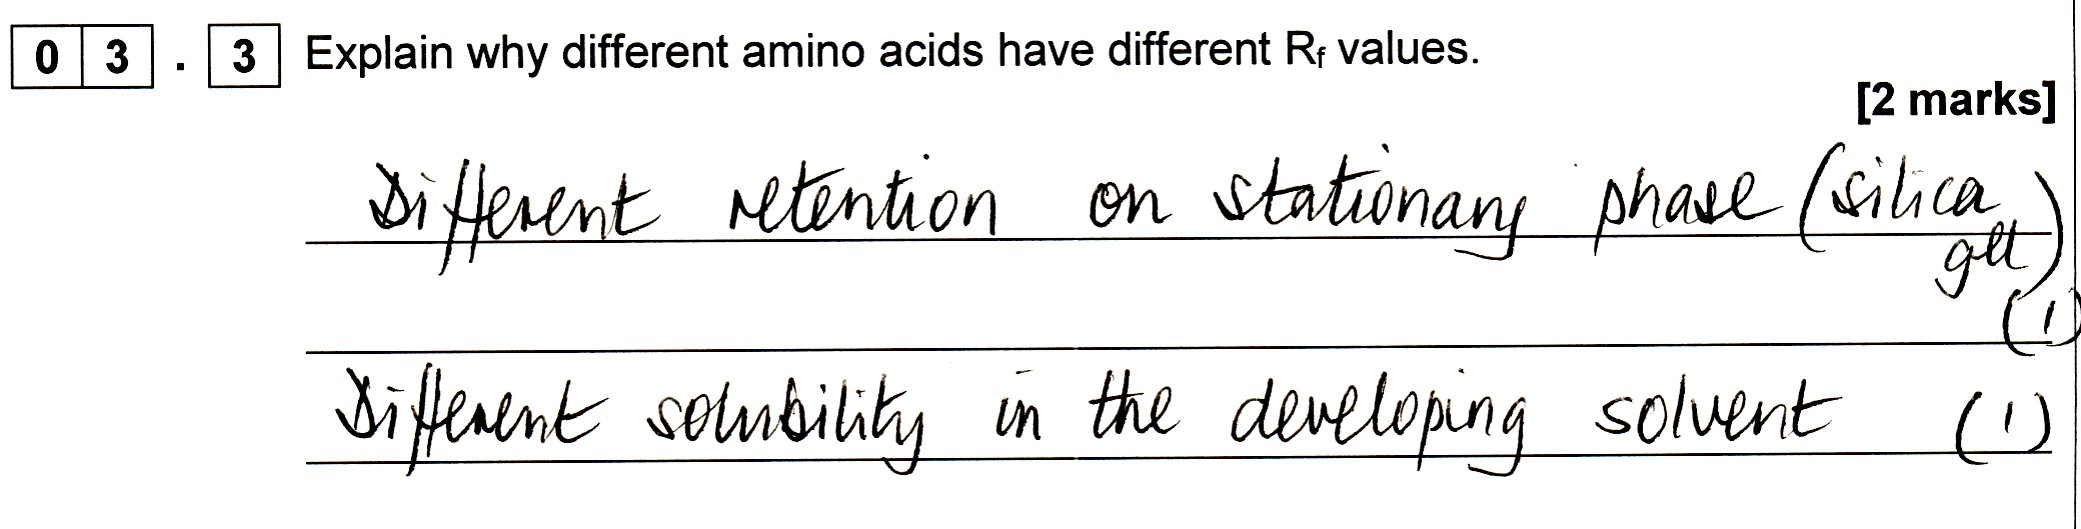 03.3 Explain why different amino acids have different Rf values.
[2 marks]
Different retention on stationary phase (silica
gel)
(1)
Different solubility in the developing solvent (1)